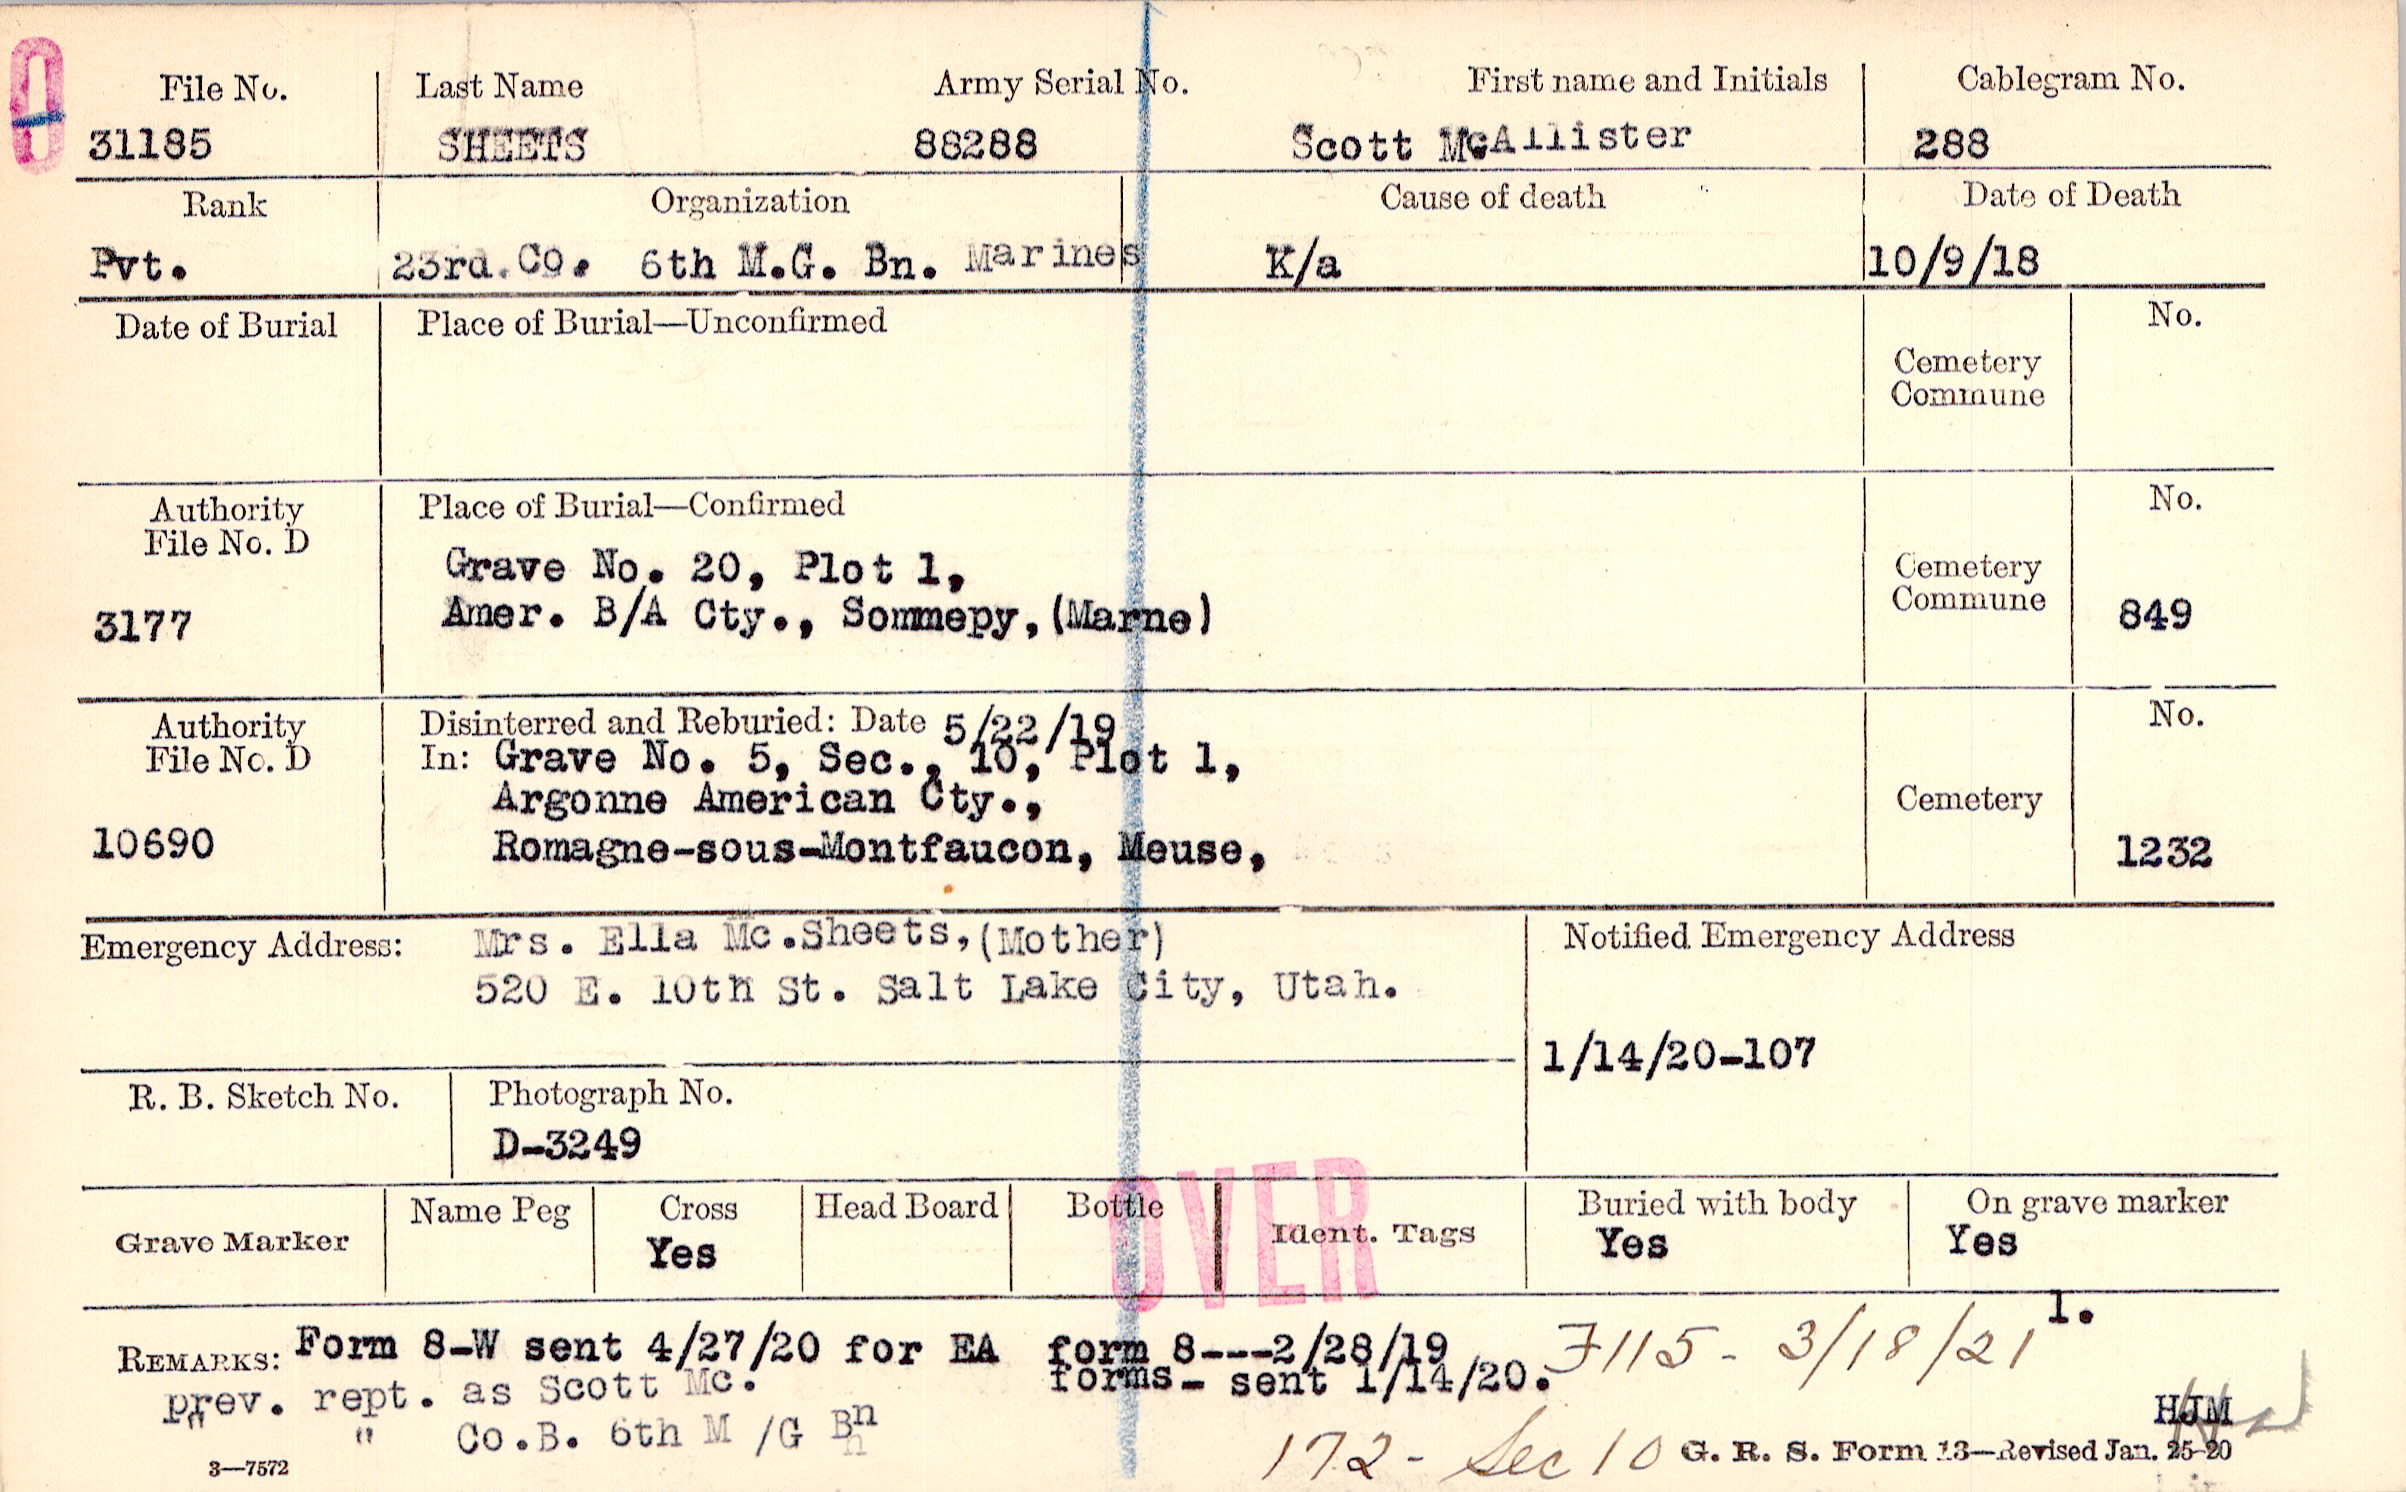 0
File No. Last Name Army Serial No. First name and Initials Cablegram No.
31185 SHEETS 88288 Scott McAllister 288
Rank Organization Cause of death Date of Death
Pvt. 23rd. Co. 6th M.G. Bn. Marines K/a 10/9/18
Date of Burial Place of Burial—Unconfirmed No.
Cemetery
Commune
Authority Place of Burial—Confirmed No.
File No. D
Grave No. 20, Plot 1, Cemetery
3177 Amer. B/A Cty., Sommepy, (Marne) Commune 849
Authority Disinterred and Reburied: Date 5/22/19 No.
File No. D In: Grave No. 5, Sec., 10, Plot 1,
Argonne American Cty., Cemetery
10690 Romagne-sous-Montfaucon, Meuse, 1232
Emergency Address: Mrs. Ella Mc.Sheets, (Mother) Notified Emergency Address
520 E. 10th St. Salt Lake City, Utah.
1/14/20-107
R. B. Sketch No. Photograph No.
D-3249
OVER
Name Peg Cross Head Board Bottle Buried with body On grave marker
Grave Marker Yes Ident. Tags Yes Yes
1.
REMARKS: Form 8-W sent 4/27/20 for EA form 8---2/28/19 F115- 3/18/21
prev. rept. as Scott Mc. forms- sent 1/14/20.
" " Co.B. 6th M /G Bn HJM
172- Sec 10 G. R. S. Form 13—Revised Jan. 25-20
3—7572